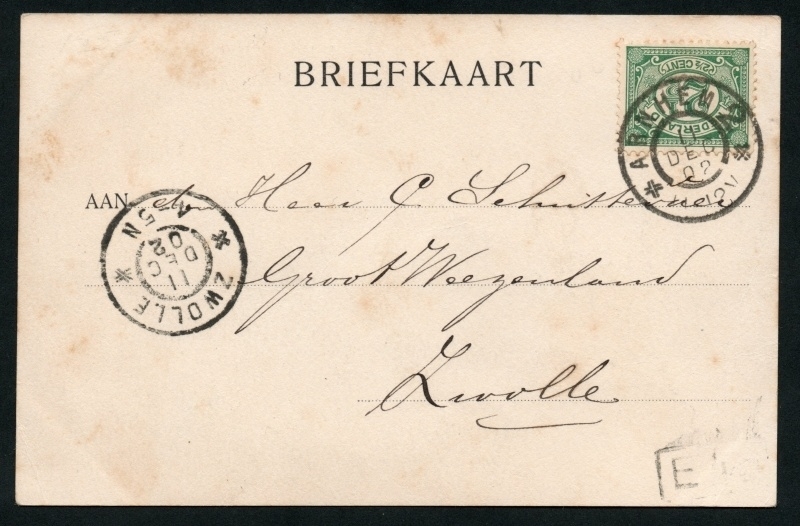 BRIEFKAART
2½ CENT
NEDERLAND
ARNHEM
11
DEC
02
12V
AAN den Heer C. Schuttevaer
Groot Weezenland
Zwolle
ZWOLLE
11
DEC
02
4-5N
E